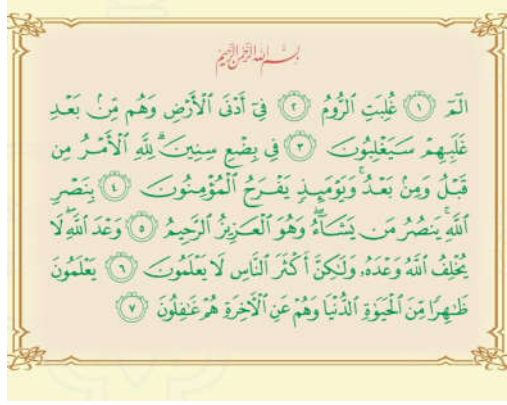 بِسْمِ اللَّهِ الرَّحْمَٰنِ الرَّحِيمِ
الٓمٓ ١ غُلِبَتِ ٱلرُّومُ ٢ فِىٓ أَدْنَى ٱلْأَرْضِ وَهُم مِّنۢ بَعْدِ
غَلَبِهِمْ سَيَغْلِبُونَ ٣ فِى بِضْعِ سِنِينَ ۗ لِلَّهِ ٱلْأَمْرُ مِن
قَبْلُ وَمِنۢ بَعْدُ ۚ وَيَوْمَئِذٍ يَفْرَحُ ٱلْمُؤْمِنُونَ ٤ بِنَصْرِ
ٱللَّهِ ۚ يَنصُرُ مَن يَشَآءُ ۖ وَهُوَ ٱلْعَزِيزُ ٱلرَّحِيمُ ٥ وَعْدَ ٱللَّهِ ۖ لَا
يُخْلِفُ ٱللَّهُ وَعْدَهُۥ وَلَٰكِنَّ أَكْثَرَ ٱلنَّاسِ لَا يَعْلَمُونَ ٦ يَعْلَمُونَ
ظَٰهِرًا مِّنَ ٱلْحَيَوٰةِ ٱلدُّنْيَا وَهُمْ عَنِ ٱلْأَخِرَةِ هُمْ غَٰفِلُونَ ٧